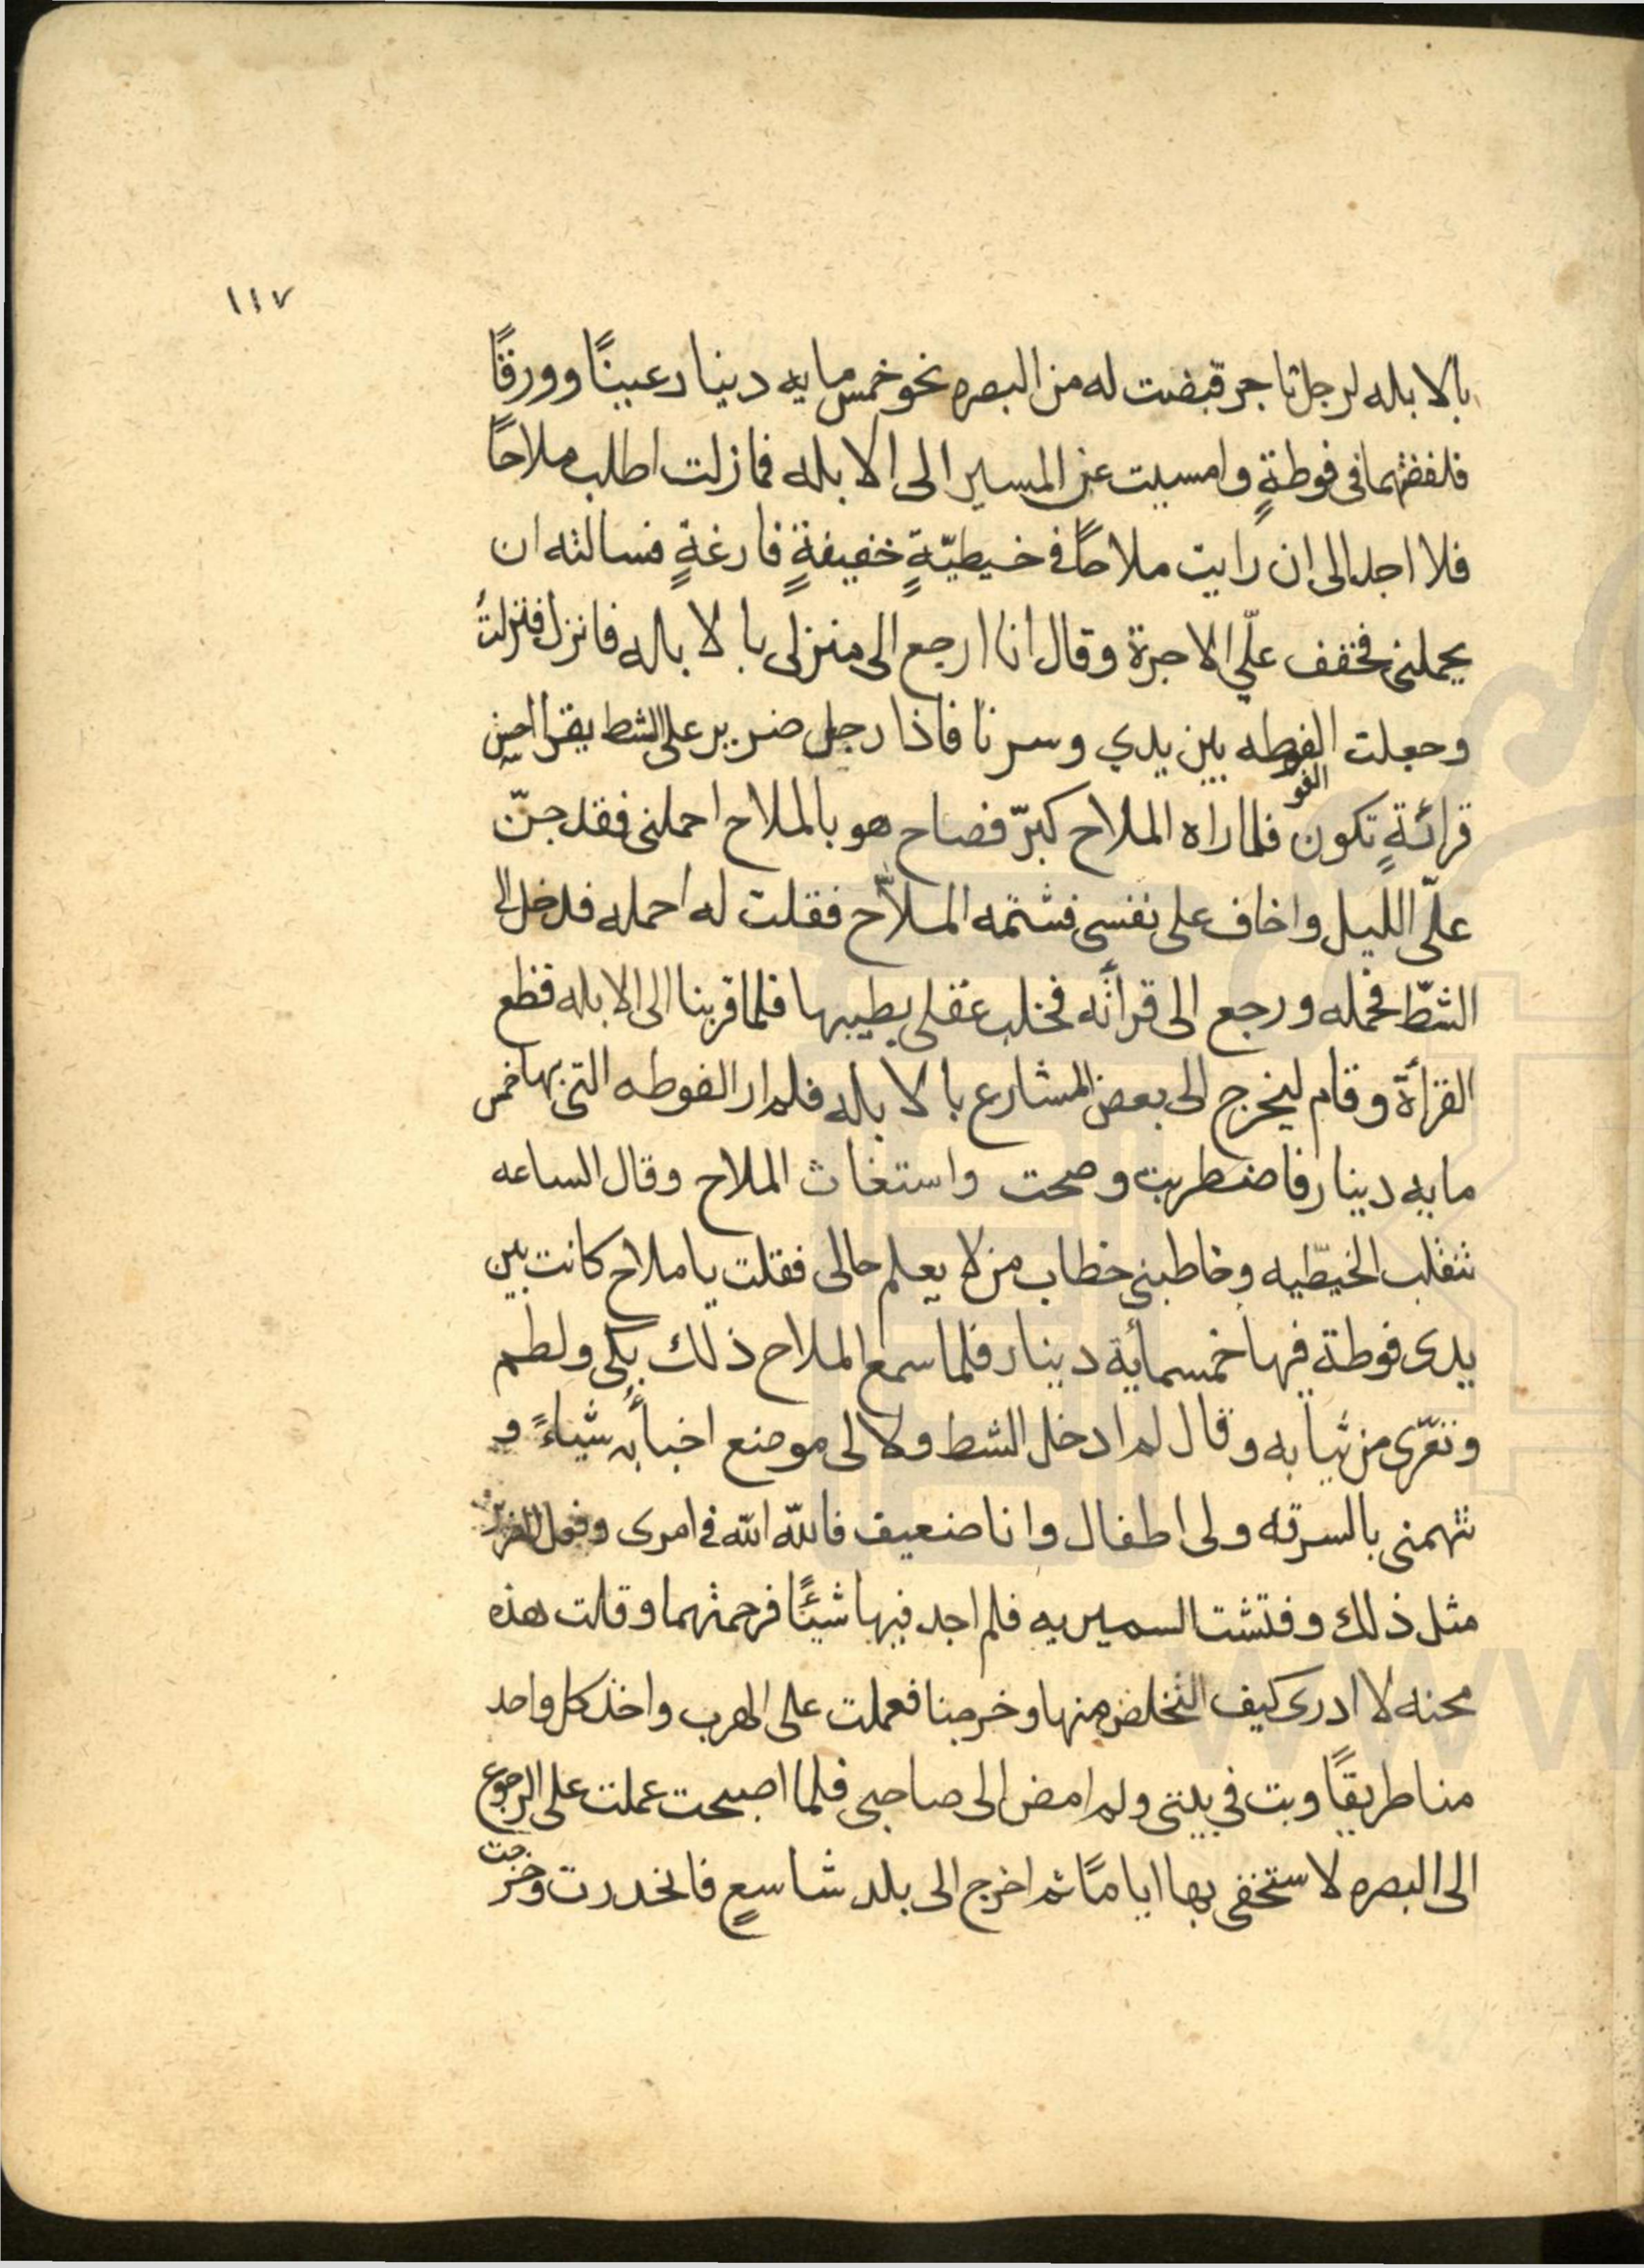 ١١٧
بالابله لرجل تاجر قبضت له من البصره نحو خمس مايه دينار عينًا وورقًا
فلففتهما فى فوطةٍ وامسيت عن المسير الى الابله فما زلت اطلب ملاحًا
فلا اجد الى ان رايت ملاحًا فى خيطيّةٍ خفيفةٍ فارغةٍ فسالته ان
يحملنى فخفف علّي الاجرة وقال انا ارجع الى منزلى بالابله فانزل فنزلتُ
وجعلت الفوطه بين يدي وسرنا فاذا رجل ضرير على الشط يقرا احسن
قرائةٍ تكون فلما راه الملاح كبرّ فصاح هو بالملاح احملنى فقد جنّ
علّى الليل واخاف على نفسى فشتمه الملاّح فقلت له احمله فدخل الى
الشطّ فحمله ورجع الى قرأته فخلب عقلى بطيبها فلما قربنا الى الابله قطع
القرأة وقام ليخرج الى بعض المشارع بالابله فلم ار الفوطه التى بها خمس
مايه دينار فاضطربت وصحت واستغاث الملاح وقال الساعه
تنقلب الخيطّيه وخاطبنى خطاب من لا يعلم حالى فقلت يا ملاح كانت بين
يدى فوطة فيها خمسمأية دينار فلما سمع الملاح ذلك بكى ولطم
وتعّرى من ثيابه وقال لم ادخل الشط ولا لى موضع اخبأ به شيًاءً و
تتهمنى بالسرقه ولى اطفال وانا ضعيف فالله الله فى امرى وفعل الضرير
مثل ذلك وفتشت السميريه فلم اجد فيها شيئًا فرحمتهما وقلت هذه
محنه لا ادرى كيف التخلص منها وخرجنا فعملت على الهرب واخذ كل واحد
منا طريقًا وبت فى بيتى ولم امض الى صاحبى فلما اصبحت عملت على الرجوع
الى البصره لاستخفى بها ايامًا ثم اخرج الى بلد شاسعٍ فانحدرت وخرجت